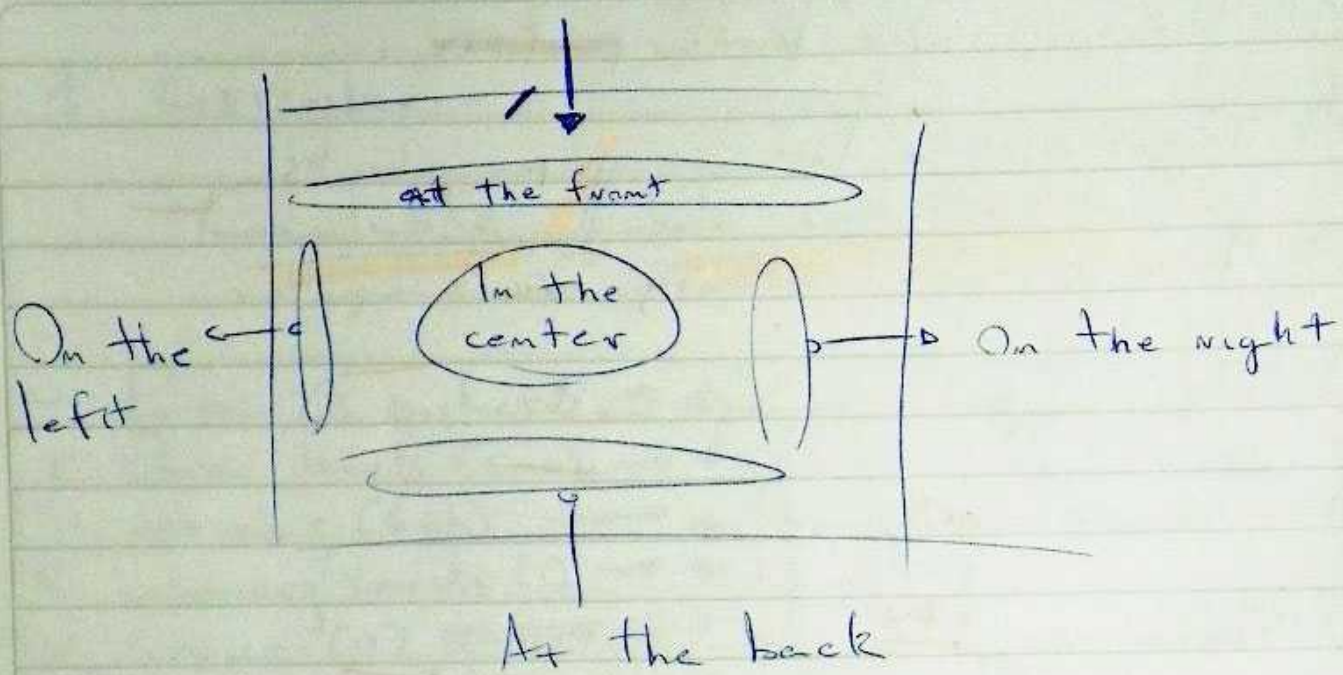 at the front
In the
center
On the
left
On the right
At the back